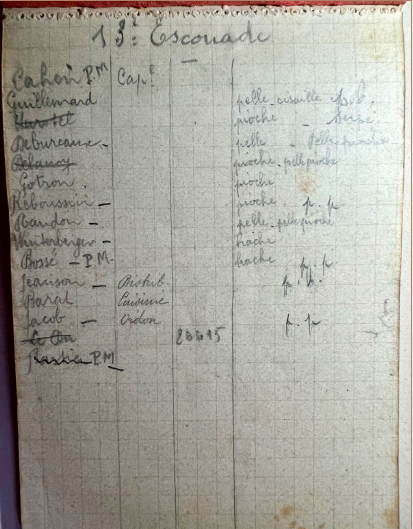 13: Escouade
Cahen P.M Cap.l
Guillemard pelle cisaille p.b.
pioche - Serpe
Debureaux - pelle - Pelle pioche
Delaunay pioche - pelle pioche
Gotron . pioche
Reboussin - pioche. p. p
Naudon - pelle - pelle pioche
Winterberger - hache
Bossé - P.M. hache p. p
Jeanson - Distrib. p. p.
Barat Cuisine
Jacob - Ordon p. p
Le
P.M